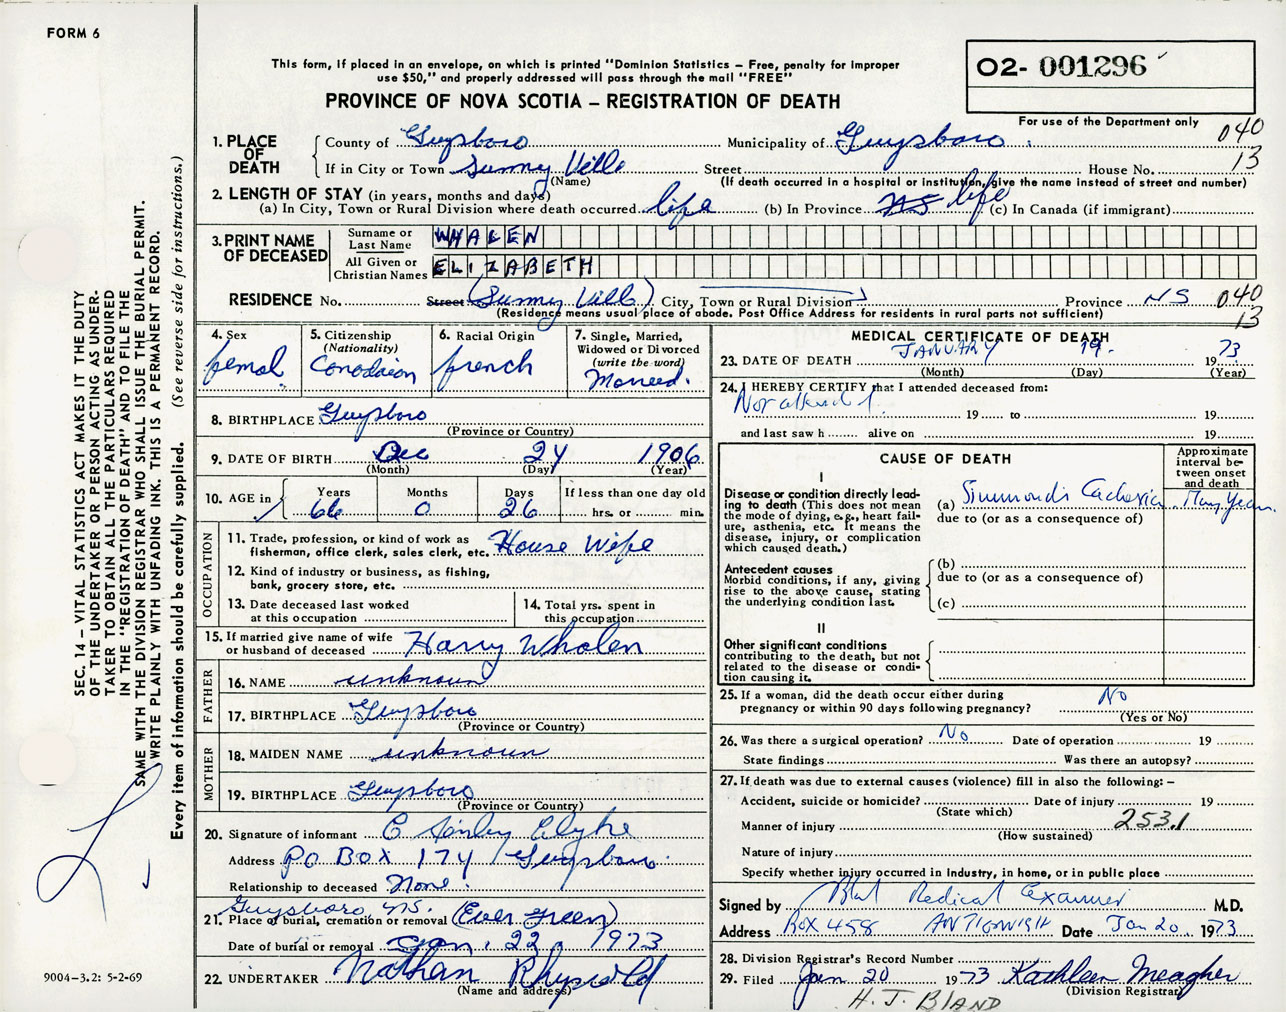 FORM 6
This form, if placed in an envelope, on which is printed "Dominion Statistics – Free, penalty for improper
use $50," and properly addressed will pass through the mail "FREE"
PROVINCE OF NOVA SCOTIA – REGISTRATION OF DEATH
O2- 001296
For use of the Department only
040
13
1. PLACE OF DEATH County of Guysboro Municipality of Guysboro
If in City or Town Sunny Ville Street House No.
(Name) (If death occurred in a hospital or institution, give the name instead of street and number)
2. LENGTH OF STAY (in years, months and days)
(a) In City, Town or Rural Division where death occurred life (b) In Province NS life (c) In Canada (if immigrant)
3. PRINT NAME OF DECEASED
Surname or Last Name WHALEN
All Given or Christian Names ELIZABETH
RESIDENCE No. Street (Sunny Ville) City, Town or Rural Division Province NS 040
13
(Residence means usual place of abode. Post Office Address for residents in rural parts not sufficient)
4. Sex femal
5. Citizenship (Nationality) Canadaian
6. Racial Origin french
7. Single, Married, Widowed or Divorced (write the word) Marreed.
8. BIRTHPLACE Guysboro
(Province or Country)
9. DATE OF BIRTH Dec 24 1906
(Month) (Day) (Year)
10. AGE in Years 66 Months 0 Days 26 If less than one day old hrs. or min.
OCCUPATION
11. Trade, profession, or kind of work as
fisherman, office clerk, sales clerk, etc. House Wife
12. Kind of industry or business, as fishing,
bank, grocery store, etc.
13. Date deceased last worked
at this occupation
14. Total yrs. spent in
this occupation
15. If married give name of wife
or husband of deceased Harry Whalen
FATHER
16. NAME unknoun
17. BIRTHPLACE Guysboro
(Province or Country)
MOTHER
18. MAIDEN NAME unknoun
19. BIRTHPLACE Guysboro
(Province or Country)
20. Signature of informant C Clyke
Address PO BOX 174 Guysboro
Relationship to deceased None.
Guysboro NS.
21. Place of burial, cremation or removal (Ever Green)
Date of burial or removal Jan. 22, 1973
22. UNDERTAKER Nathan
(Name and address)
MEDICAL CERTIFICATE OF DEATH
23. DATE OF DEATH JANUARY 19. 1973
(Month) (Day) (Year)
24. I HEREBY CERTIFY that I attended deceased from:
Not attended 19 to 19
and last saw h alive on 19
CAUSE OF DEATH
Approximate interval between onset and death
I
Disease or condition directly lead-
ing to death (This does not
mean the mode of dying, e.g., heart fail-
ure, asthenia, etc. It means the
disease, injury, or complication
which caused death.)
(a) Simmonds Cachexia Many Years.
due to (or as a consequence of)
Antecedent causes
Morbid conditions, if any, giving
rise to the above cause, stating
the underlying condition last.
(b)
due to (or as a consequence of)
(c)
II
Other significant conditions
contributing to the death, but not
related to the disease or condi-
tion causing it.
25. If a woman, did the death occur either during
pregnancy or within 90 days following pregnancy? No
(Yes or No)
26. Was there a surgical operation? No Date of operation 19
State findings Was there an autopsy?
27. If death was due to external causes (violence) fill in also the following: –
Accident, suicide or homicide? Date of injury 19
(State which)
Manner of injury 253.1
(How sustained)
Nature of injury
Specify whether injury occurred in industry, in home, or in public place
Signed by Medical Examiner M.D.
Address Box 458 ANTIGONISH Date Jan 20. 1973
28. Division Registrar's Record Number
29. Filed Jan 20 1973 Kathleen Meagher
(Division Registrar)
H. J. BLAND
SEC. 14 – VITAL STATISTICS ACT MAKES IT THE DUTY
OF THE UNDERTAKER OR PERSON ACTING AS UNDER-
TAKER TO OBTAIN ALL THE PARTICULARS REQUIRED
IN THE "REGISTRATION OF DEATH" AND TO FILE THE
SAME WITH THE DIVISION REGISTRAR WHO SHALL ISSUE THE BURIAL PERMIT.
WRITE PLAINLY WITH UNFADING INK. THIS IS A PERMANENT RECORD.
Every item of information should be carefully supplied. (See reverse side for instructions.)
9004-3.2: 5-2-69